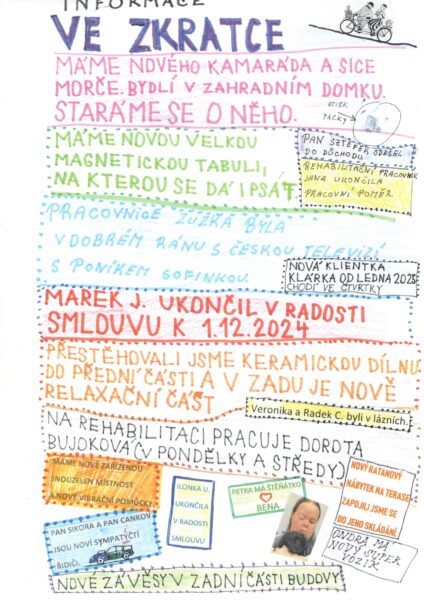 INFORMACE
VE ZKRATCE
MÁME NOVÉHO KAMARÁDA A SICE
MORČE. BYDLÍ V ZAHRADNÍM DOMKU.
STARÁME SE O NĚHO.
OTISK
PACKY
MÁME NOVOU VELKOU
MAGNETICKOU TABULI,
NA KTEROU SE DÁ I PSÁT
PAN ODEŠEL
DO DŮCHODU
REHABILITAČNÍ PRACOVNICE
JANA UKONČILA
PRACOVNÍ POMĚR.
PRACOVNICE ZUZKA BYLA
V DOBRÉM RÁNU S ČESKOU TELEVIZÍ
S PONÍKEM SOFINKOU
NOVÁ KLIENTKA
KLÁRKA OD LEDNA 2025
CHODÍ VE ČTVRTKY
MAREK J. UKONČIL V RADOSTI
SMLOUVU K 1.12.2024
PŘESTĚHOVALI JSME KERAMICKOU DÍLNU
DO PŘEDNÍ ČÁSTI A V ZADU JE NOVĚ
RELAXAČNÍ ČÁST
Veronika a Radek C. byli v lázních.
NA REHABILITACI PRACUJE DOROTA
BUJOKOVÁ (V PONDĚLKY A STŘEDY)
MÁME NOVĚ ZAŘÍZENOU
SNOUZELEN MÍSTNOST
A NOVÉ VIBRAČNÍ POMŮCKY
PAN SIKORA A PAN CANKOV
JSOU NOVÍ SYMPATIČTÍ
ŘIDIČI.
ILONKA U.
UKONČILA
V RADOSTI
SMLOUVU
PETRA MÁ ŠTĚŇÁTKO
BENA
NOVÝ RATANOVÝ
NÁBYTEK NA TERASE
ZAPOJILI JSME SE
DO JEHO SKLÁDÁNÍ.
ONDRA MÁ
NOVÝ SUPER
VOZÍK
NOVÉ ZÁVĚSY V ZADNÍ ČÁSTI BUDOVY